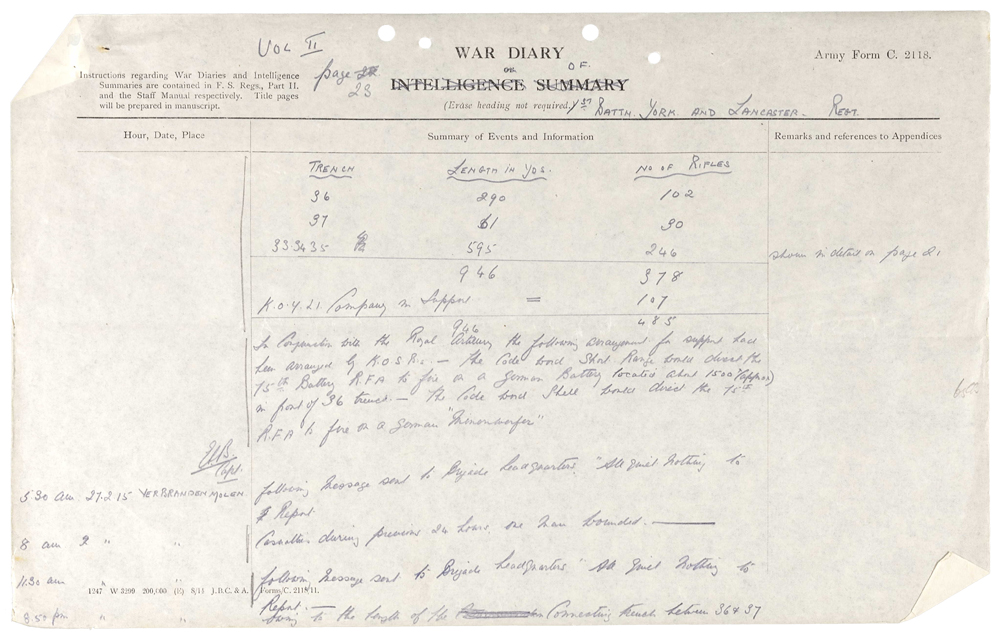 VOL II
page 23
WAR DIARY
OF.
OR
INTELLIGENCE SUMMARY
(Erase heading not required.)
Army Form C. 2118.
Instructions regarding War Diaries and Intelligence
Summaries are contained in F. S. Regs., Part II.
and the Staff Manual respectively. Title pages
will be prepared in manuscript.
1ST BATTN. YORK AND LANCASTER REGT.
Hour, Date, Place
Summary of Events and Information
Remarks and references to Appendices
TRENCH LENGTH IN YDS. NO OF RIFLES
36 290 102
37 61 30
33 34 35 595 246
shown in detail on page 21
946 378
K.O.Y.L.I. Company in Support = 107
485
946
In Conjunction with the Royal Artillery the following arrangement for support have
been arranged by K.O.S.B. — The Code word Short Range would direct the
15th Battery R.F.A to fire on a German Battery located about 1500 (approx)
in front of 36 trench. — The Code word Shell would direct the 15th
R.F.A to fire on a German "Minenwerfer"
Capt.
5.30 am 27.2.15 VERBRANDENMOLEN. following message sent to Brigade headquarters, "All Quiet Nothing to
Report.
8 am " " Casualties during previous 24 hours one man wounded. —
11.30 am " " following message sent to Brigade headquarters "All Quiet Nothing to
Report. —
1247 W 3299 200,000 (E) 8/14 J.B.C. & A. Forms/C. 2118/11.
8.50 pm " " Owing to the length of the Connecting trench between 36 & 37